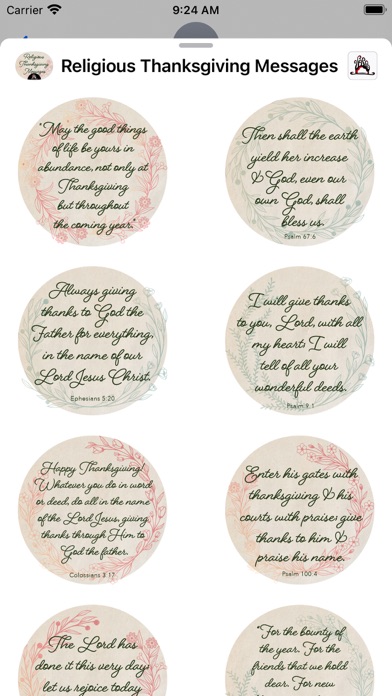 Carrier 9:24 AM
Religious
Thanksgiving
Messages
Religious Thanksgiving Messages
"May the good things
of life be yours in
abundance, not only at
Thanksgiving
but throughout
the coming year."
Then shall the earth
yield her increase
& God, even our
own God, shall
bless us.
Psalm 67:6
Always giving
thanks to God the
Father for everything,
in the name of our
Lord Jesus Christ.
Ephesians 5:20
I will give thanks
to you, Lord, with all
my heart; I will
tell of all your
wonderful deeds.
Psalm 9:1
Happy Thanksgiving!
Whatever you do in word
or deed, do all in the name
of the Lord Jesus, giving
thanks through Him to
God the father.
Colossians 3:17
Enter his gates with
thanksgiving & his
courts with praise; give
thanks to him &
praise his name.
Psalm 100:4
The Lord has
done it this very day;
let us rejoice today
"For the bounty of
the year. For the
friends that we hold
dear. For new